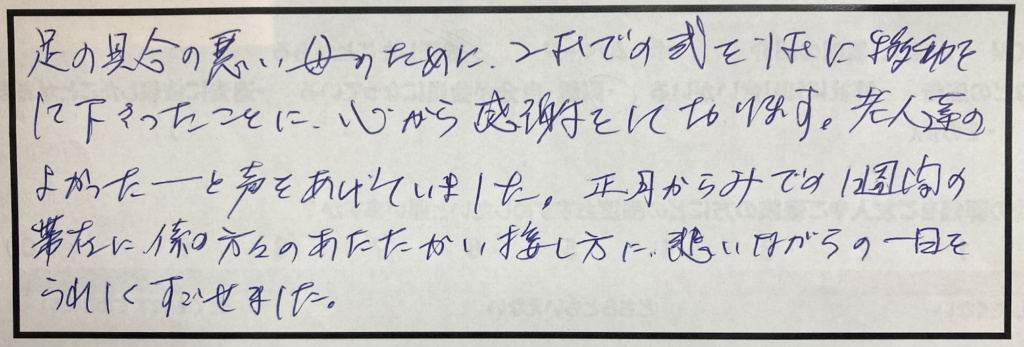 足の具合の悪い母のために、2Fでの式を1Fに移動を
して下さったことに、心から感謝をしております。老人達の
よかったーと声をあげていました。正月からみでの1週間の
滞在に係の方々のあたたかい接し方に、悲しいながらの一日を
うれしくすごせました。